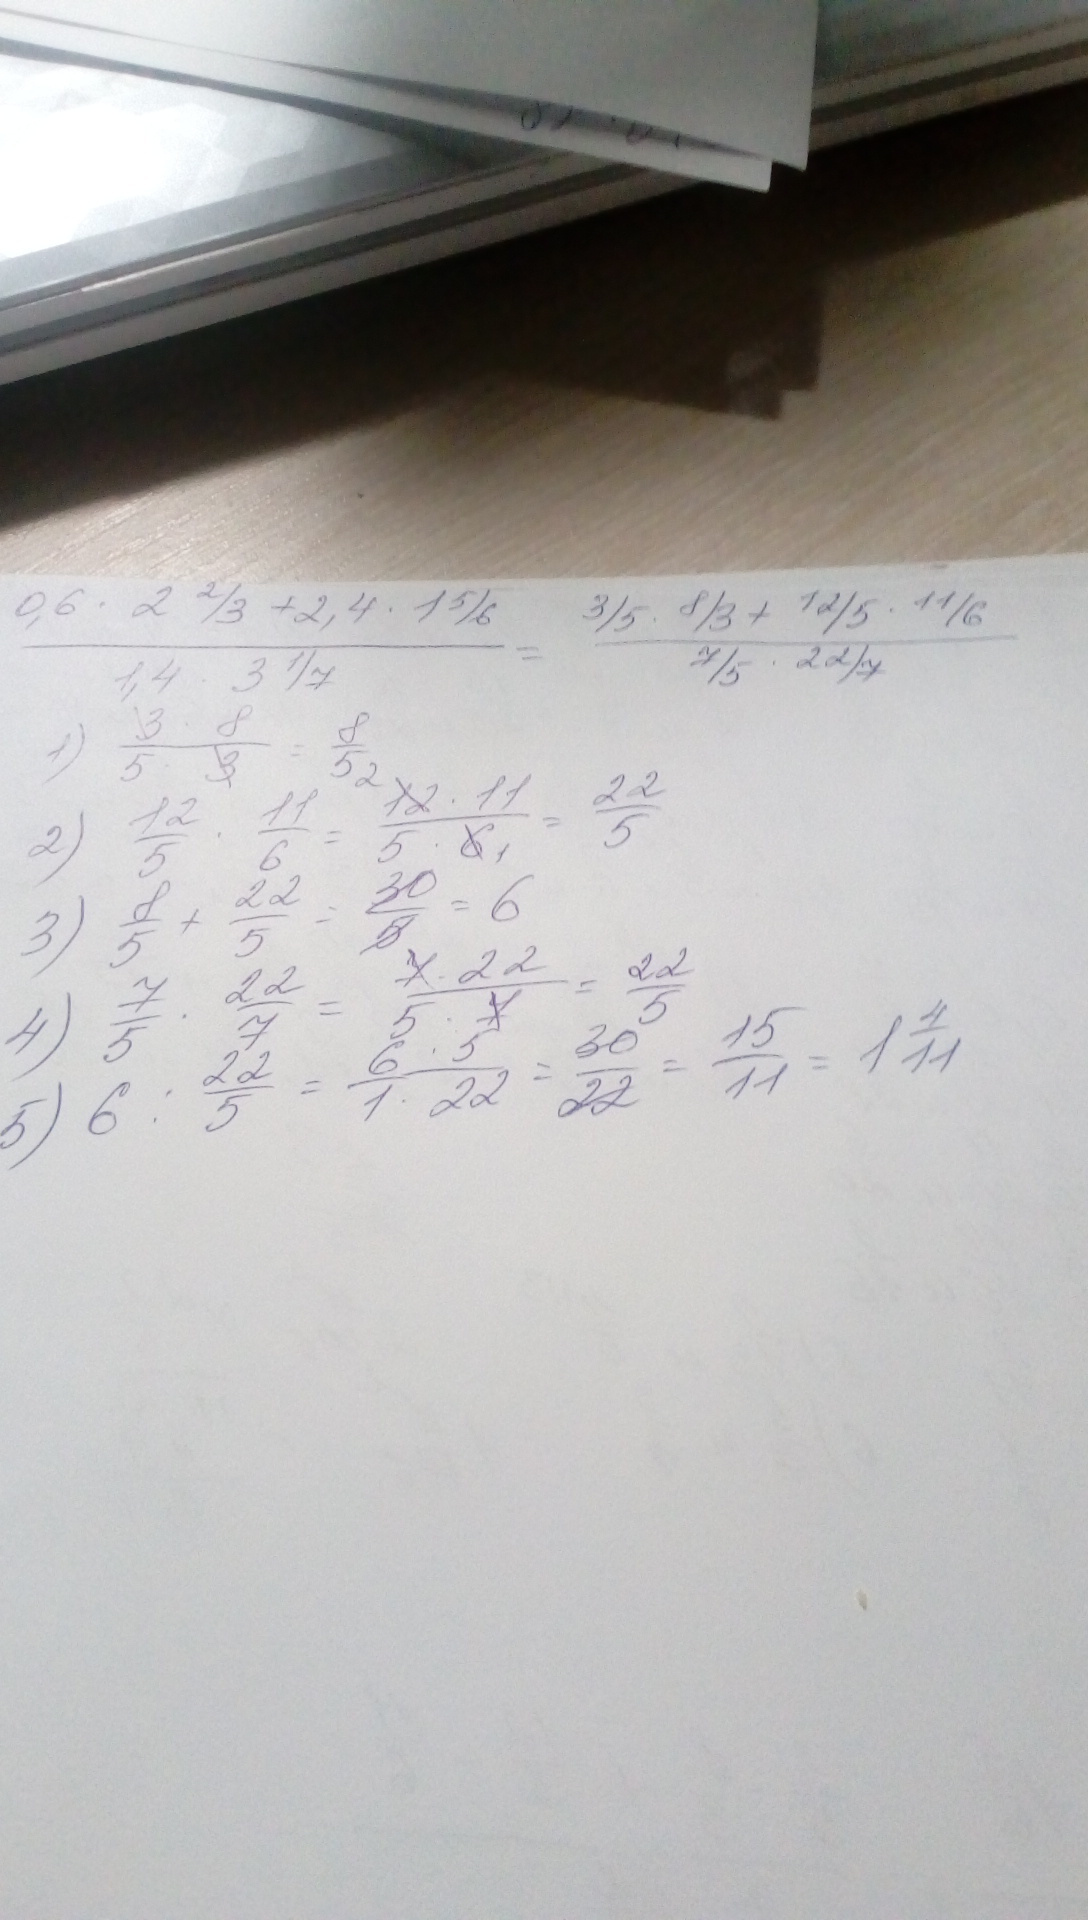 0,6 · 2 2/3 + 2,4 · 1 5/6 / 1,4 · 3 1/7 = 3/5 · 8/3 + 12/5 · 11/6 / 7/5 · 22/7
1) 3 · 8 / 5 · 3 = 8/5
2) 12/5 · 11/6 = 12 2 · 11 / 5 · 6 1 = 22/5
3) 8/5 + 22/5 = 30/5 = 6
4) 7/5 · 22/7 = 7 · 22 / 5 · 7 = 22/5
5) 6 : 22/5 = 6 · 5 / 1 · 22 = 30/22 = 15/11 = 1 4/11